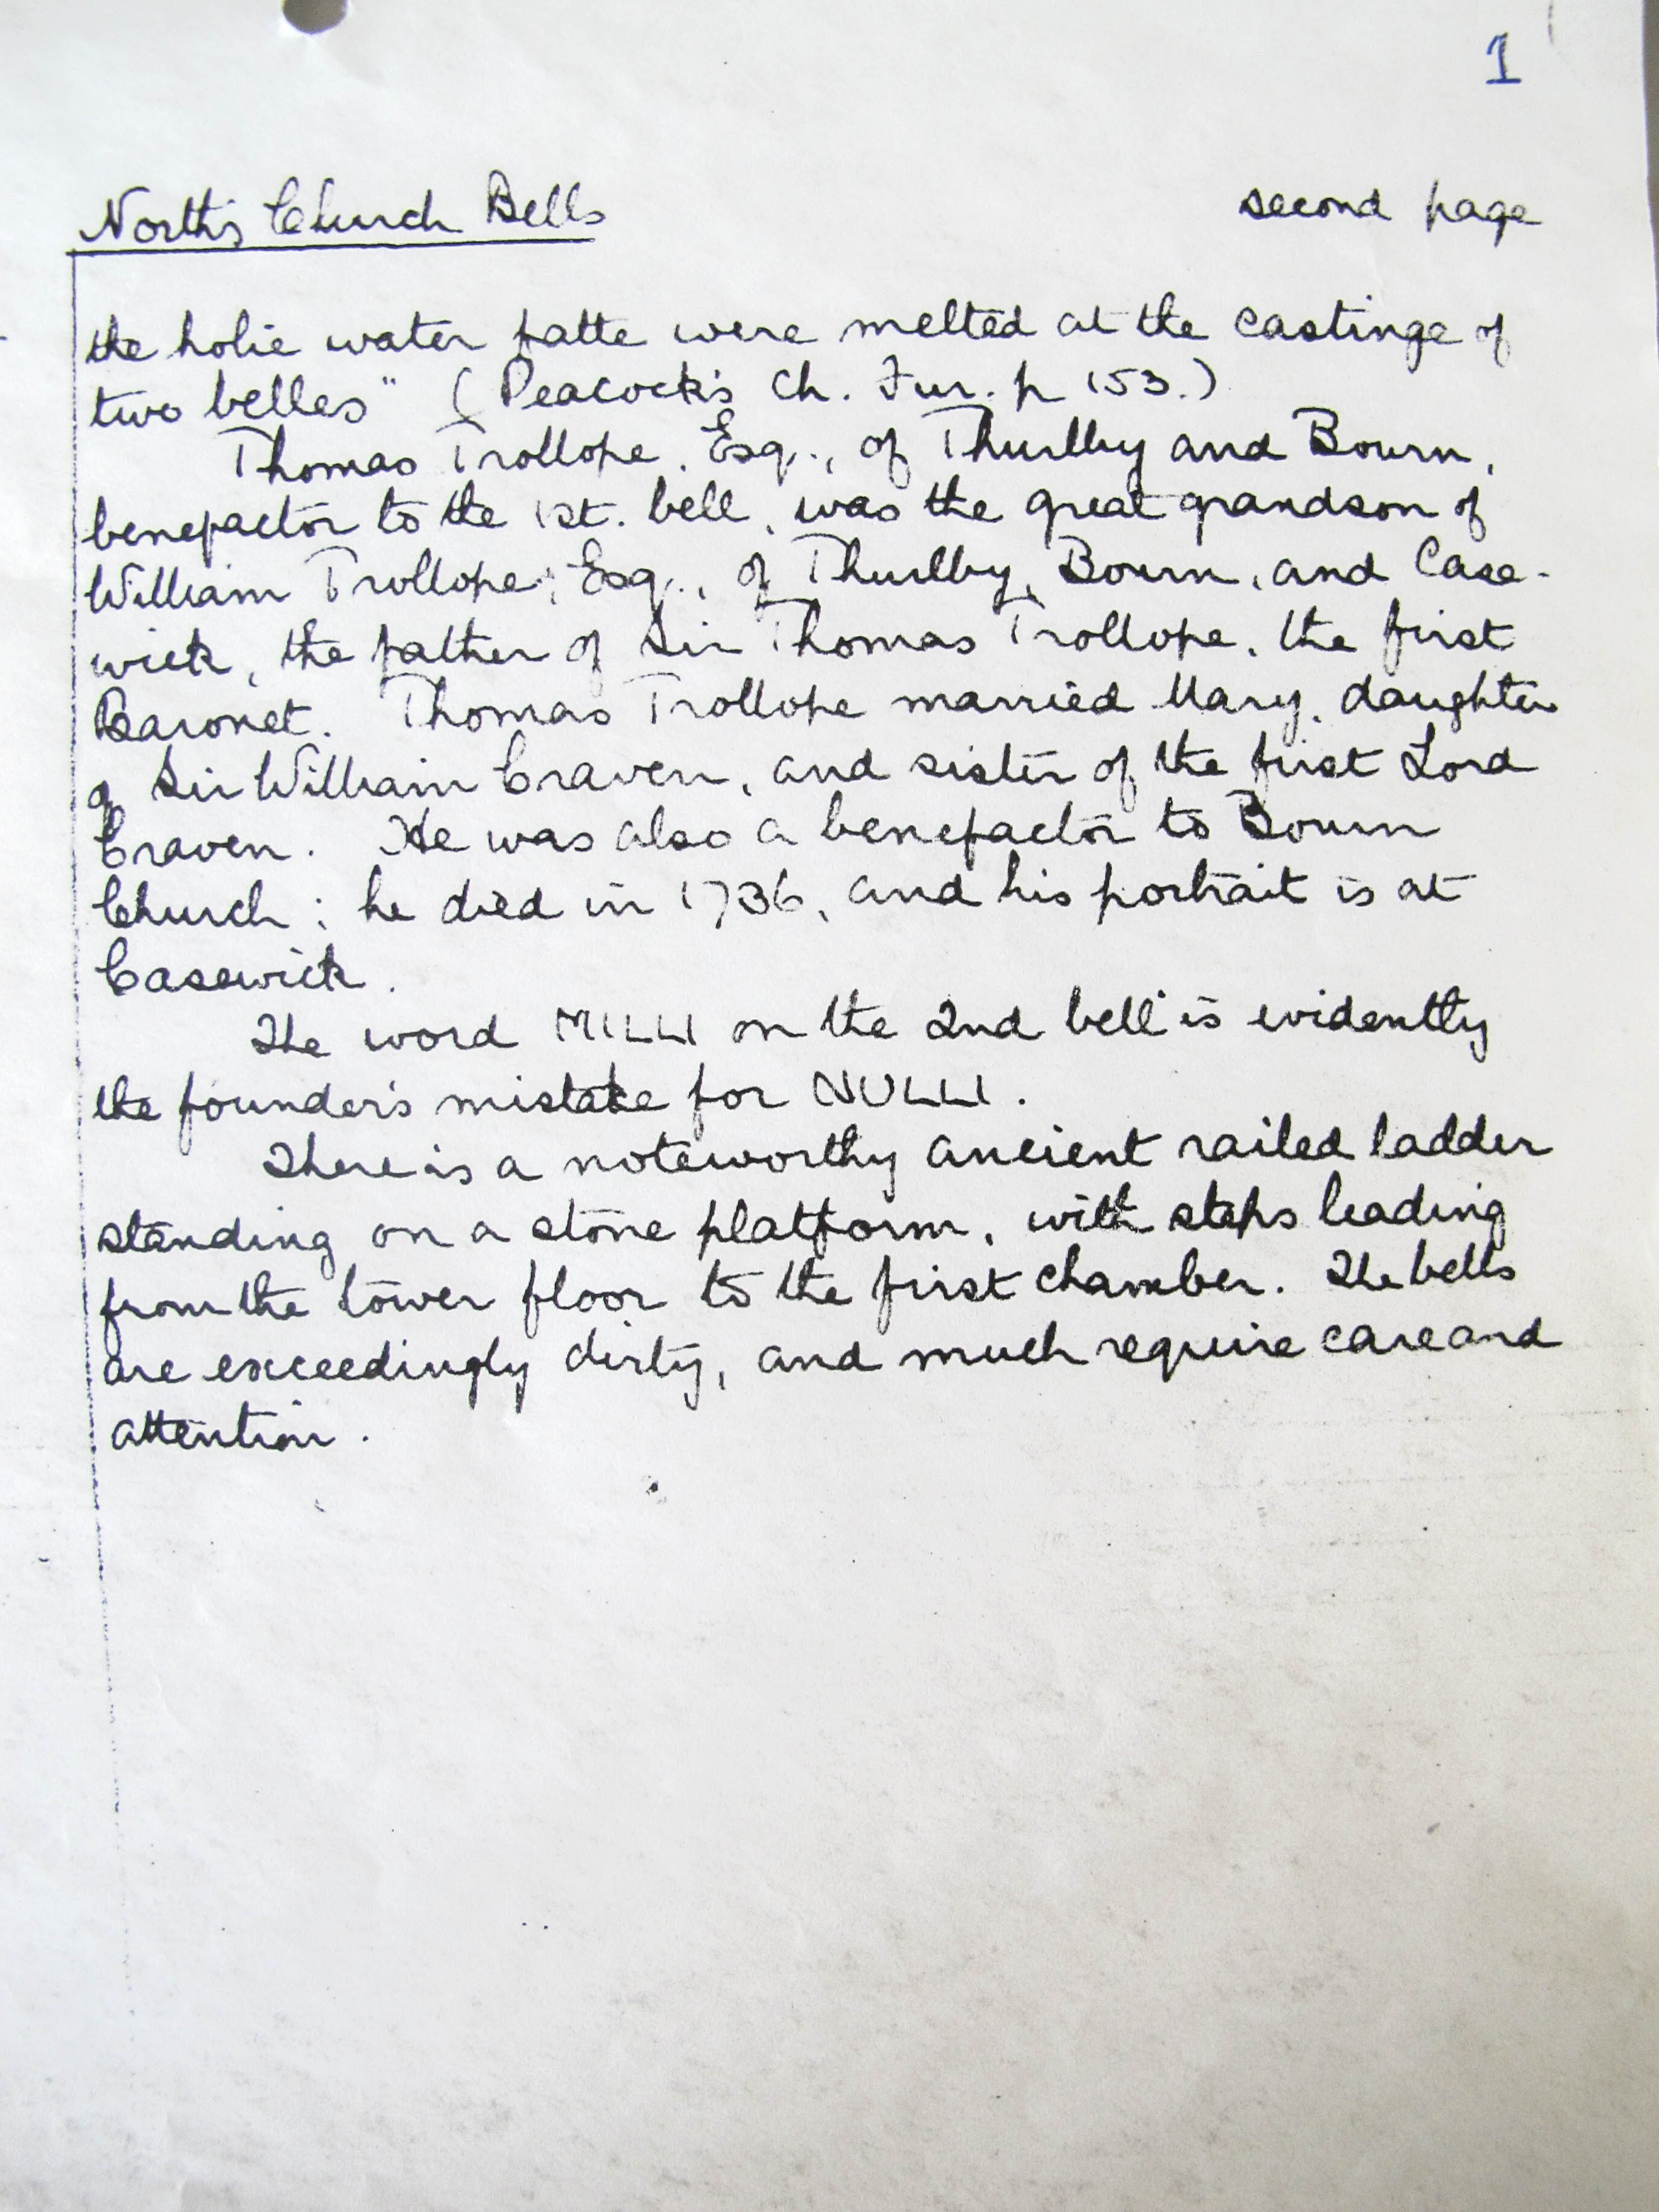 1
North's Church Bells second page
the holie water fatte were melted at the castinge of
two belles" (Peacock's Ch. Fur. p 153.)
Thomas Trollope, Esq., of Thurlby and Bourn,
benefactor to the 1st. bell, was the great grandson of
William Trollope, Esq., of Thurlby, Bourn, and Case-
wick, the father of Sir Thomas Trollope, the first
Baronet. Thomas Trollope married Mary, daughter
of Sir William Craven, and sister of the first Lord
Craven. He was also a benefactor to Bourn
Church; he died in 1736, and his portrait is at
Casewick.
The word MILLI on the 2nd bell is evidently
the founder's mistake for NULLI.
There is a noteworthy ancient railed ladder
standing on a stone platform, with steps leading
from the tower floor to the first chamber. The bells
are exceedingly dirty, and much require care and
attention.